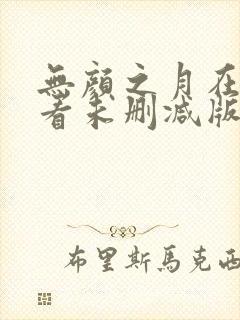 無顏之月在
看未刪減版
布里斯馬克西